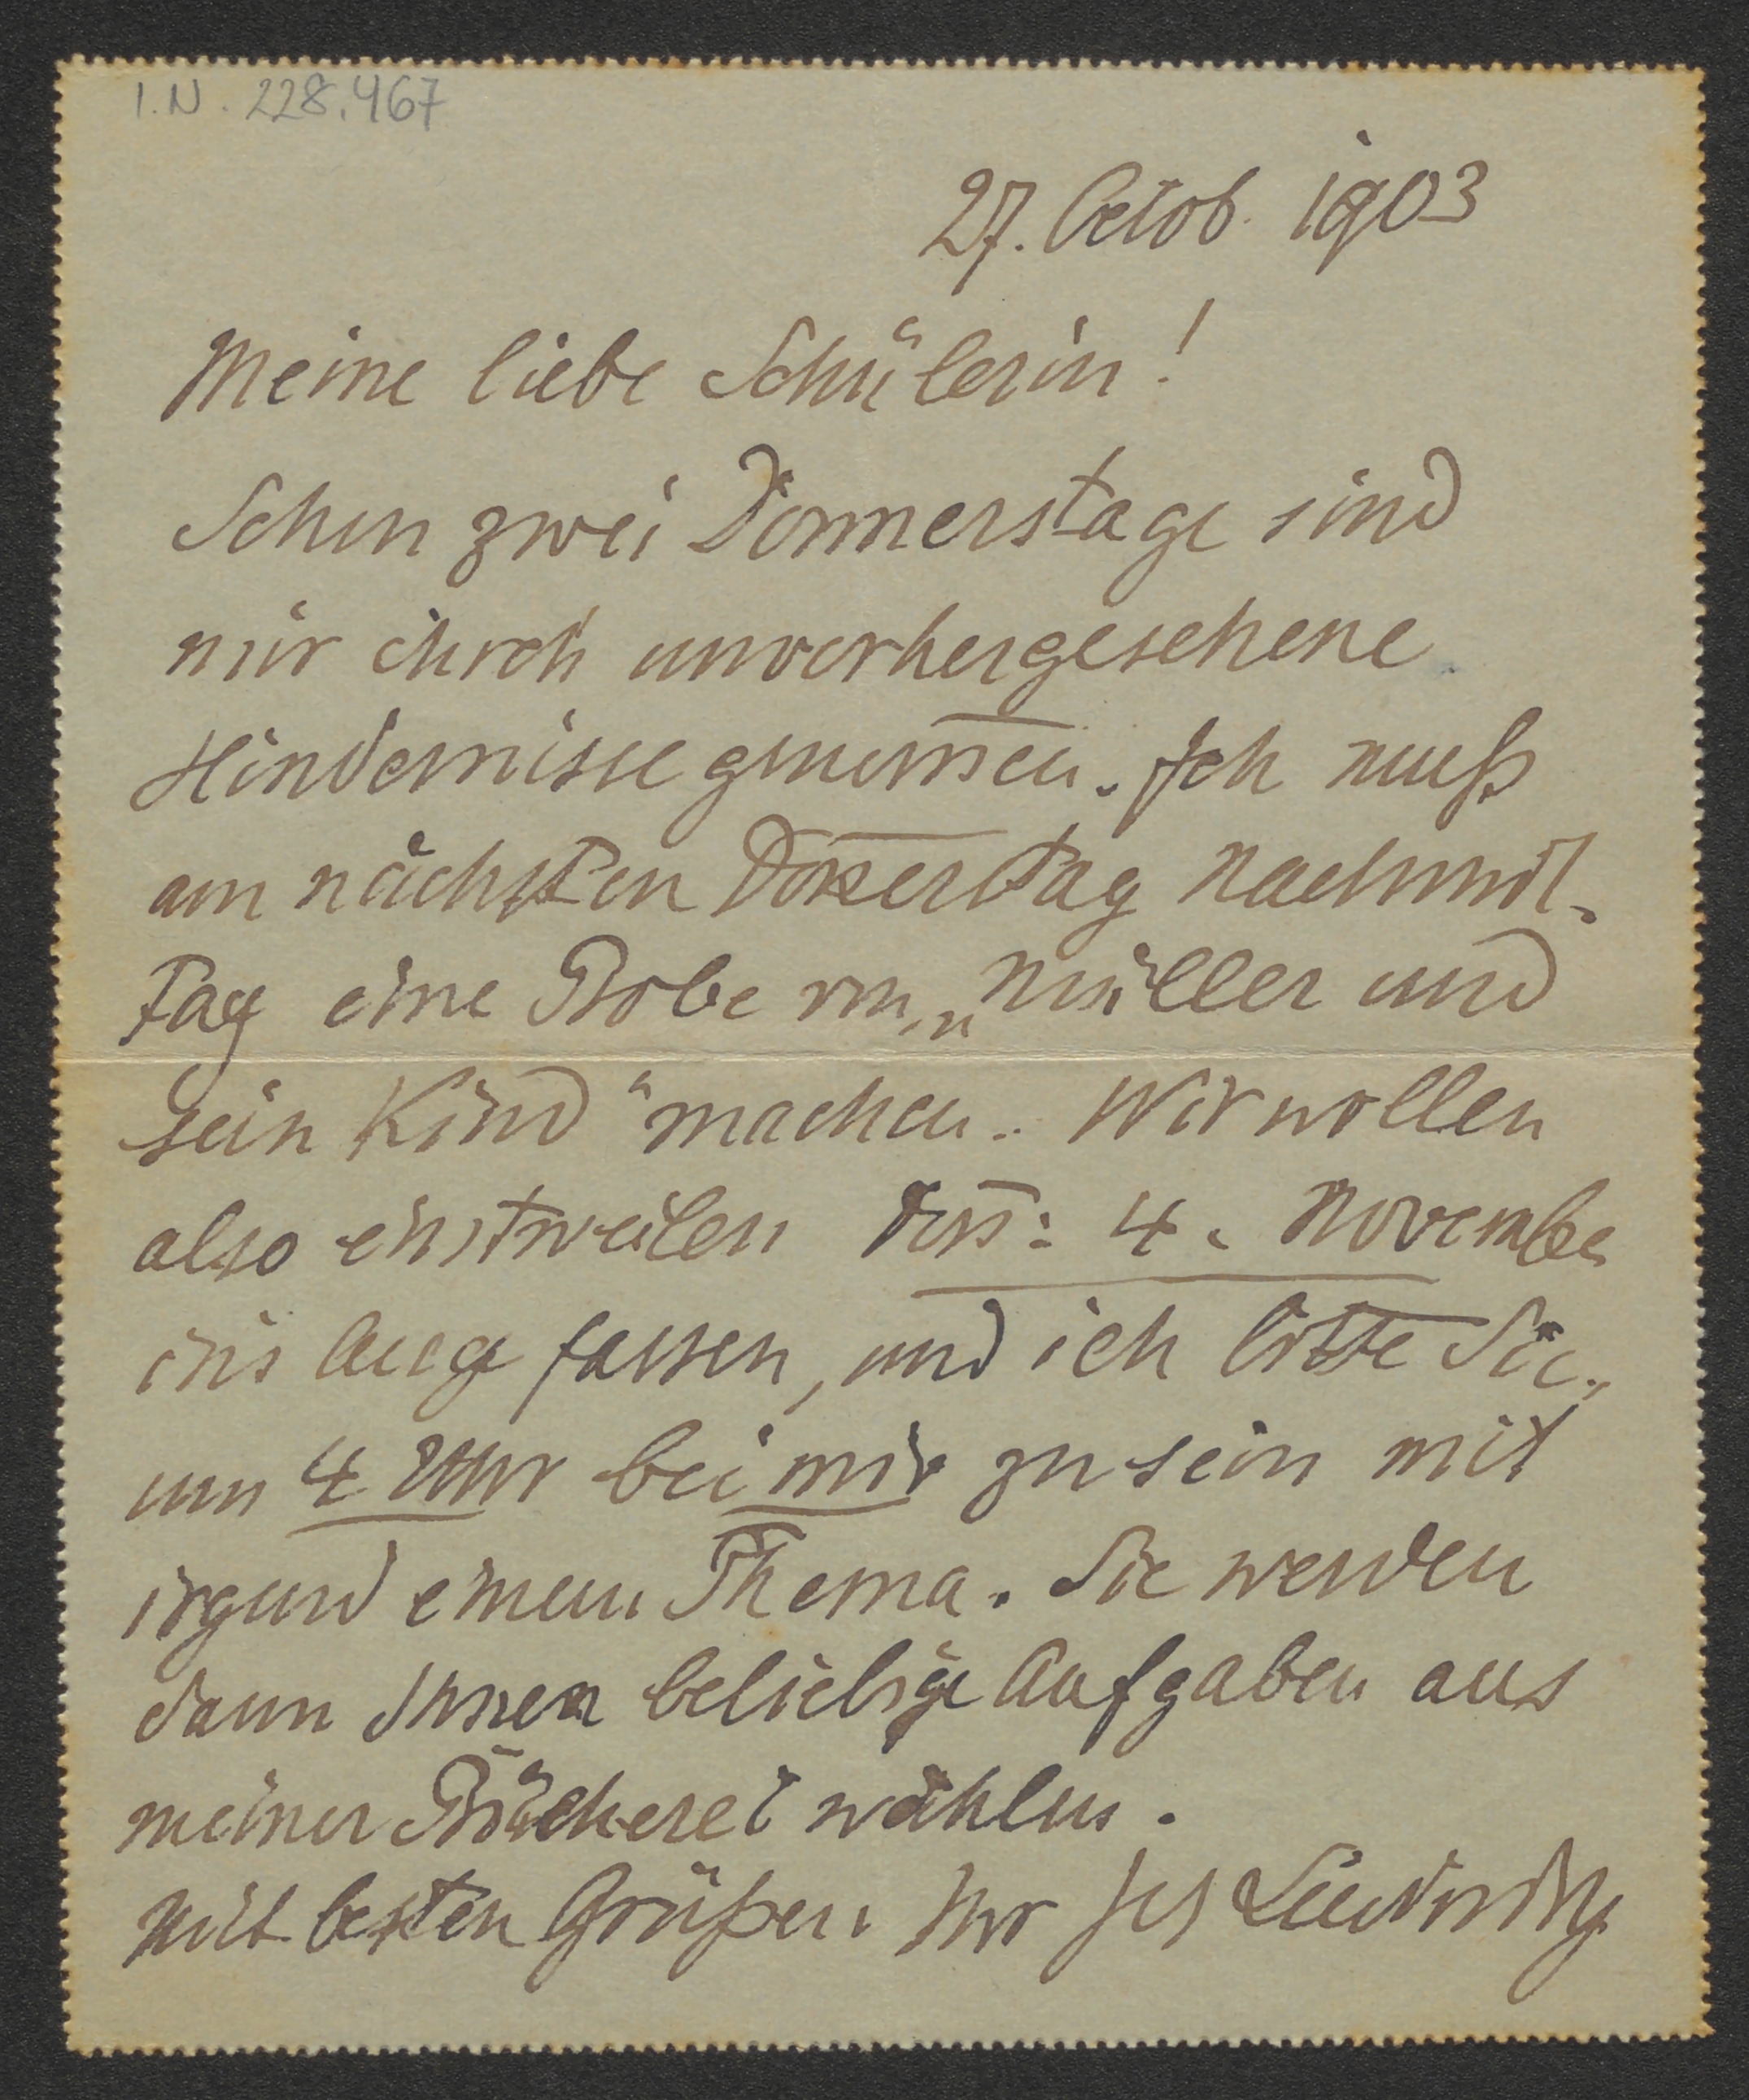 I.N. 228.467
27. Octob. 1903
Meine liebe Schülerin!
Schon zwei Donnerstage sind
mir durch unvorhergesehene
Hindernisse genom̅en. Ich muß
am nächsten Don̅erstag Nachmit-
tag eine Probe von „Müller und
sein Kind" machen. Wir wollen
also einstweilen den 4. November
ins Aug fassen, und ich bitte Sie,
um 4 Uhr bei mir zu sein mit
irgend einem Thema. Sie werden
dann Ihnen beliebige Aufgaben aus
meiner Bücherei wählen.
Mit besten Grüßen Ihr Jos Lewinsky